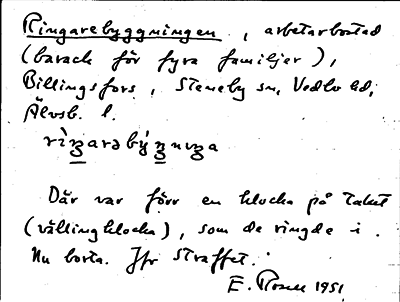 Ringarebyggningen, arbetarbostad
(barack för fyra familjer),
Billingsfors, Steneby sn, Vedbo hd,
Älvsb. l.
Där var förr en klocka på taket
(vällingklocka), som de ringde i.
Nu borta. Jfr straffet.
E. Rosell 1951